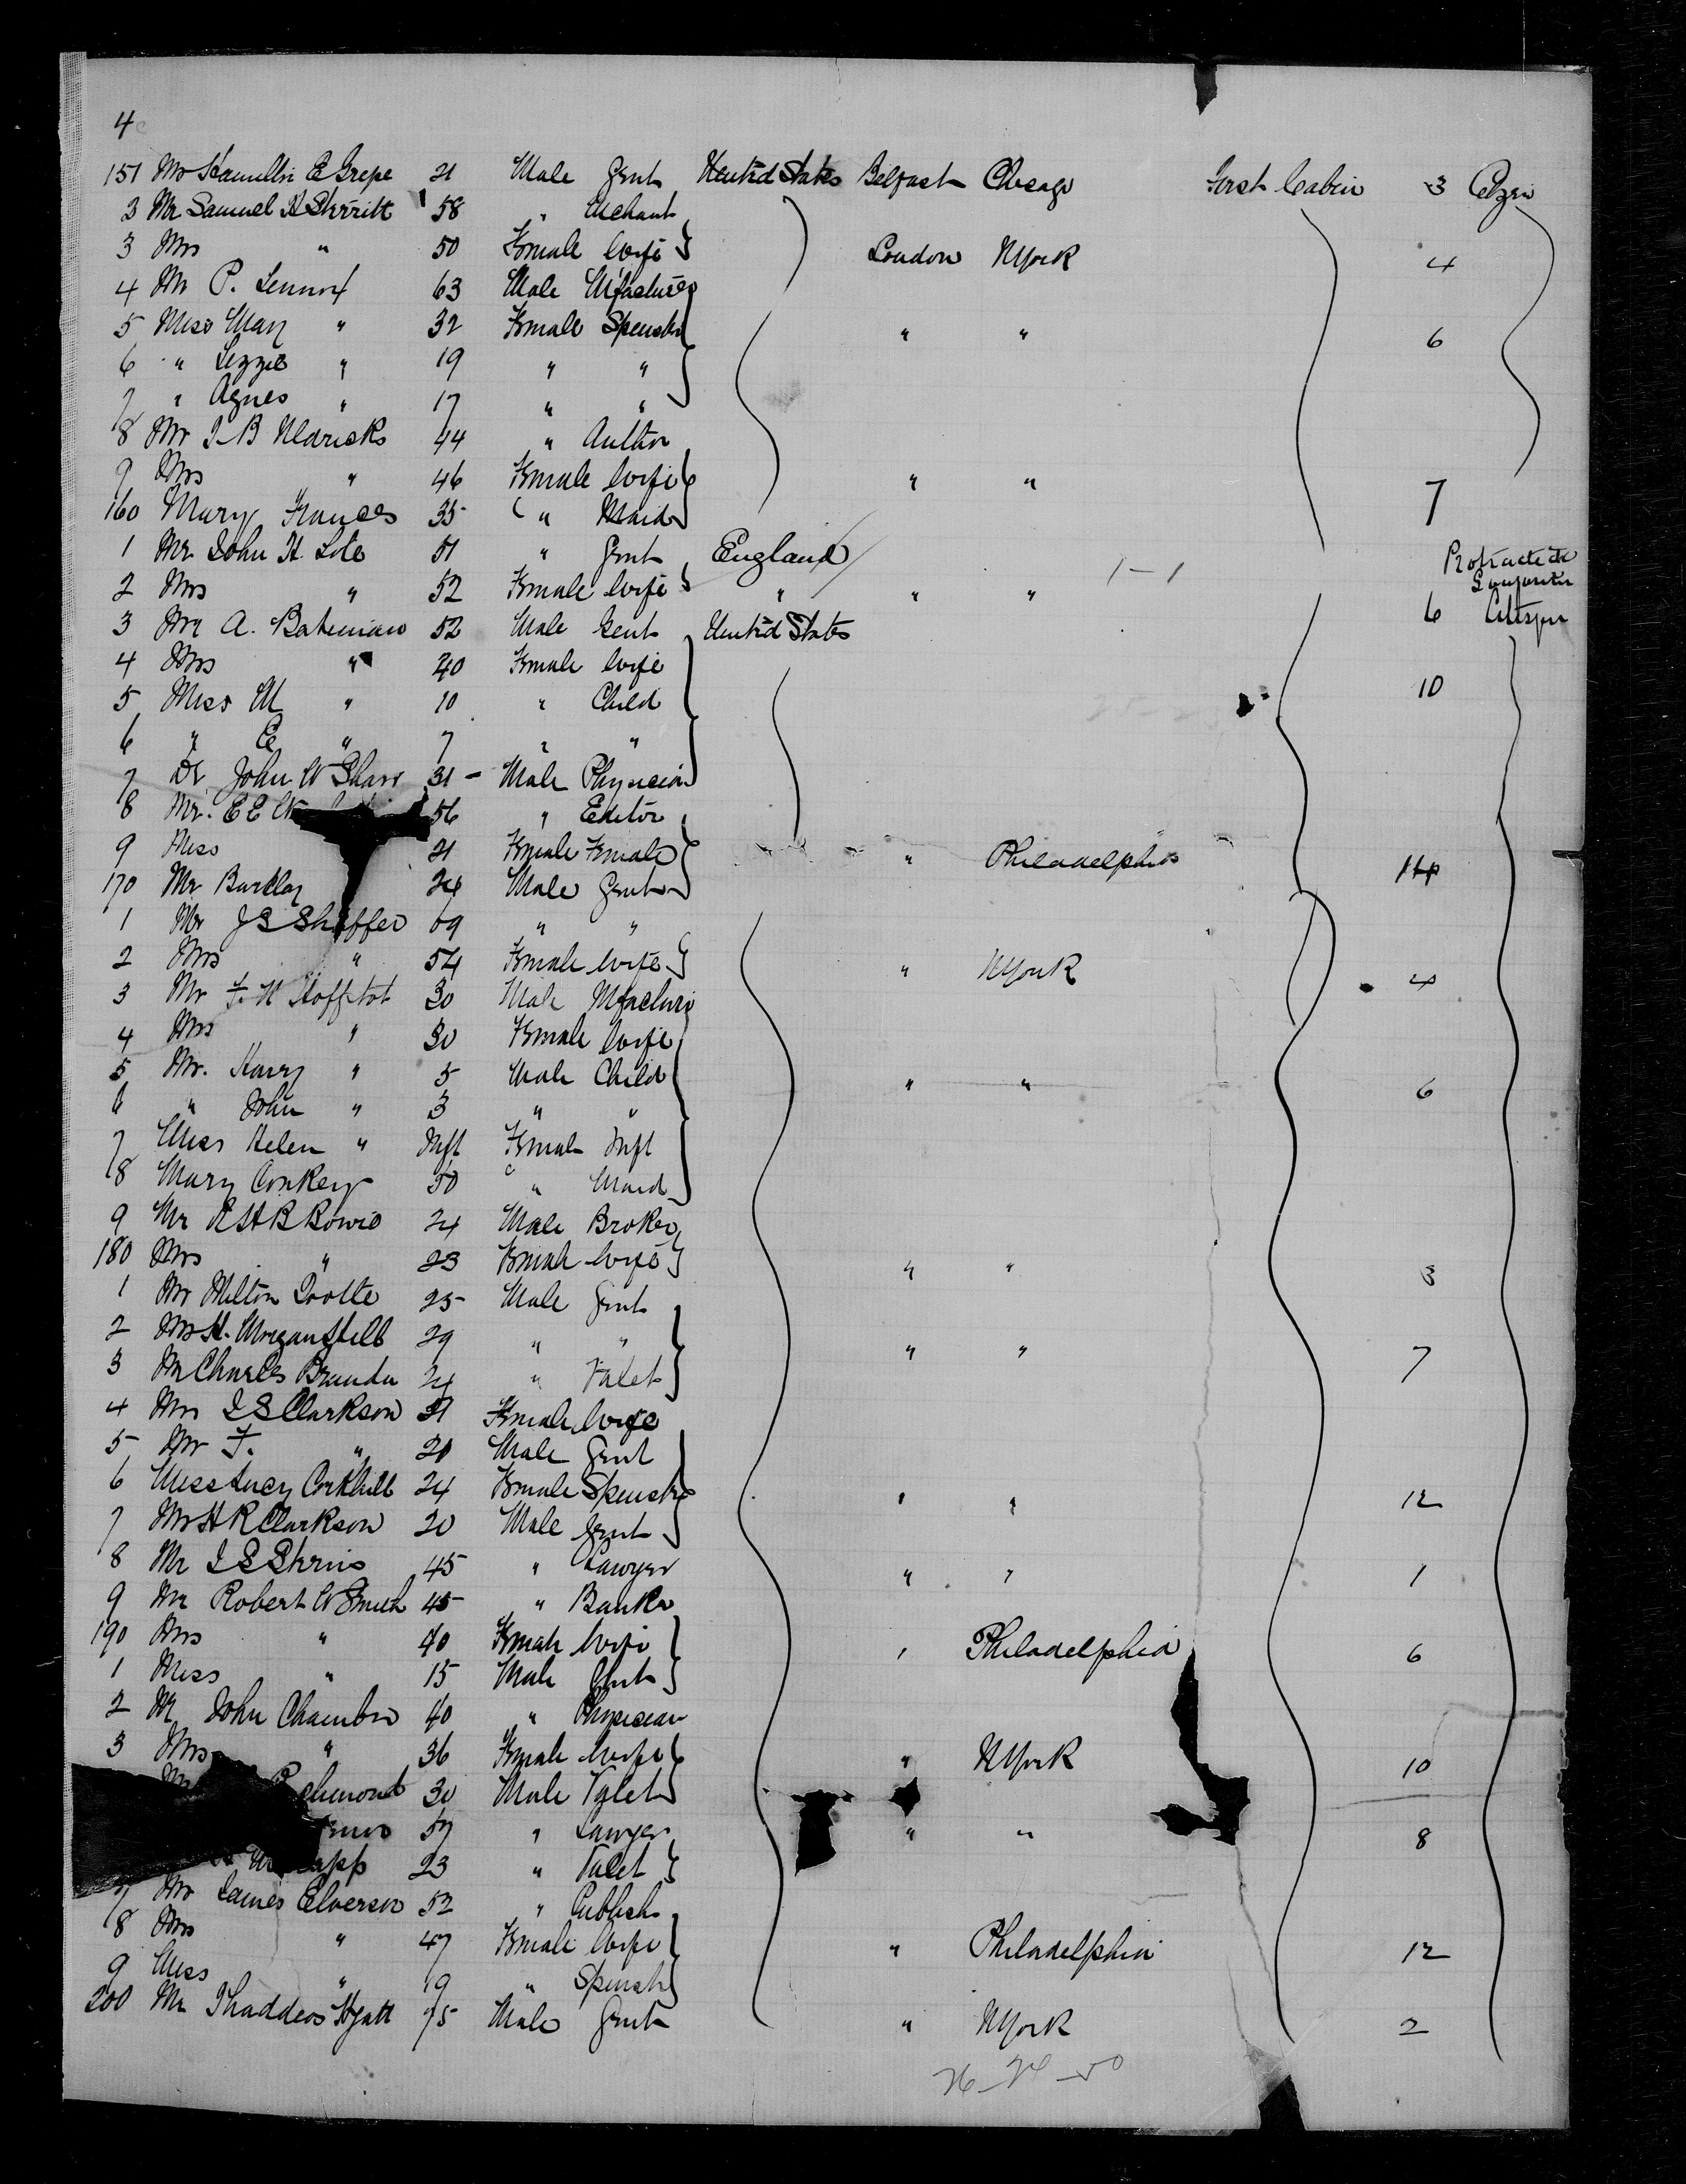 4
151 Mr Hamilton E Grepe 21 Male Gent United States Belfast Chicago First Cabin 3 Citzn
2 Mr Samuel H Sterritt 58 " Mchant
3 Mrs " 50 Female Wife London NYork 4
4 Mr P. Lennox 63 Male Mfacturer
5 Miss Mary " 32 Female Spinster " " 6
6 " Lizzie " 19 " "
7 " Agnes " 17 " "
8 Mr J B 44 " Author
9 Mrs " 46 Female Wife " " 7
160 Mary Frances 35 " Maid
1 Mr John H 51 " Gent England 1-1 Protracted
2 Mrs " 52 Female Wife " " "
3 Mr A. Bateman 52 Male Gent United States 6 Citizen
4 Mrs " 40 Female Wife
5 Miss M " 10 " Child 10
6 " E " 7 " "
7 Dr John W Shaw 31 - Male Physician
8 Mr. E E 56 " Editor
9 Miss 21 Female Female " Philadelphia 14
170 Mr Barclay 24 Male Gent
1 Mr J S Shaffer 69 " "
2 Mrs " 54 Female Wife " NYork 4
3 Mr F. N Hoffstot 30 Male Mfacturer
4 Mrs " 30 Female Wife
5 Mr. Harry " 5 Male Child " " 6
6 " John " 3 " "
7 Miss Helen " Inft Female Inft
8 Mary Conkey 50 " Maid
9 Mr R H B Bowie 24 Male Broker
180 Mrs " 23 Female Wife " " 3
1 Mr Milton Tootle 25 Male Gent
2 Mr H. Morgan Hill 29 " " " " 7
3 Mr Charles 24 " Valet
4 Mrs J S Clarkson 21 Female Wife
5 Mr F. " 20 Male Gent
6 Miss Lucy Corkhill 24 Female Spinster " " 12
7 Mr H R Clarkson 20 Male Gent
8 Mr J S 45 " Lawyer " " 1
9 Mr Robert W Smith 45 " Banker
190 Mrs " 40 Female Wife " Philadelphia 6
1 Miss " 15 Male Gent
2 Mr John Chamber 40 " Physician
3 Mrs " 36 Female Wife " NYork 10
30 Male Valet
57 " Lawyer " " 8
23 " Valet
7 Mr James Elverson 52 " Publish
8 Mrs " 47 Female Wife " Philadelphia 12
9 Miss " 19 " Spinster
200 Mr Thaddeos Hyatt 75 Male Gent " NYork 2
26-24-50